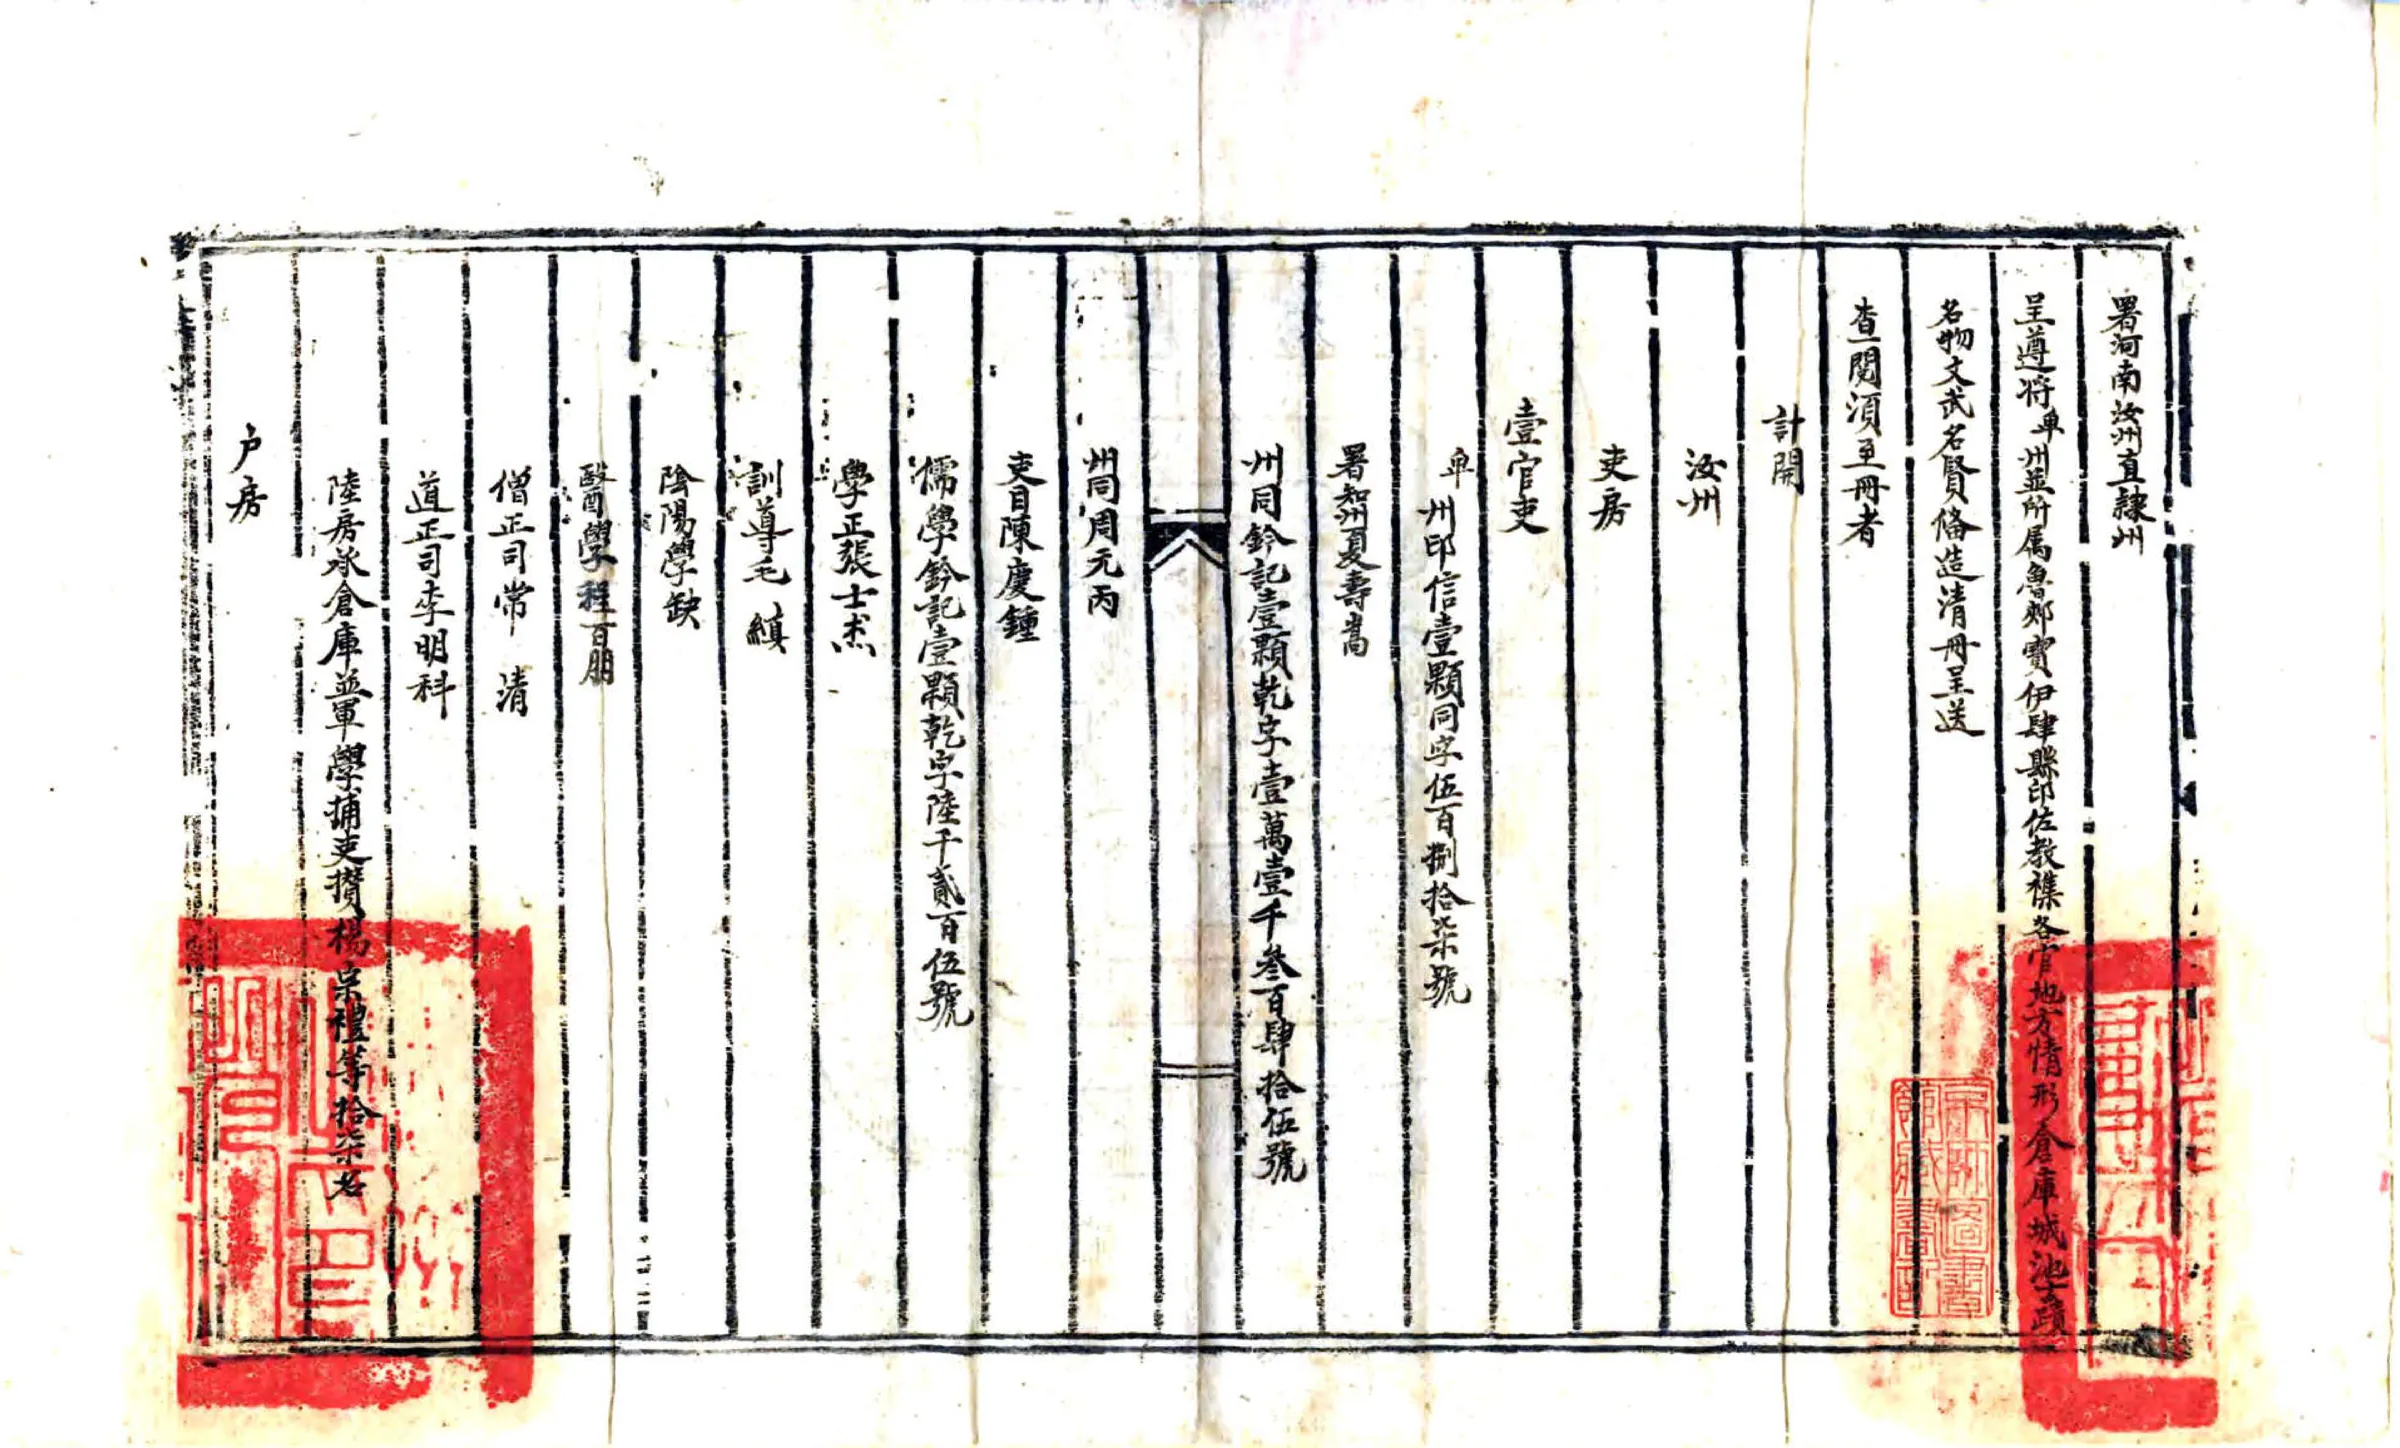 署河南汝州直隸州
呈遵將卑州並所属魯郟寶伊肆縣印佐教襍各官地方情形倉庫城池古蹟
名物文武名賢俻造清冊呈送
查閱湏至冊者
計開
汝州
吏房
壹官吏
卑州印信壹顆同字伍百捌拾柒號
署知州夏壽嵩
州同鈐記壹顆乾字壹萬壹千叁百肆拾伍號
州同周元丙
吏目陳慶鍾
儒學鈐記壹顆乾字陸千貳百伍號
學正張士杰
訓導毛縝
陰陽學缺
醫學程百朋
僧正司常清
道正司李明科
陸房承倉庫並軍學捕吏攢楊宗禮等拾柒名
户房